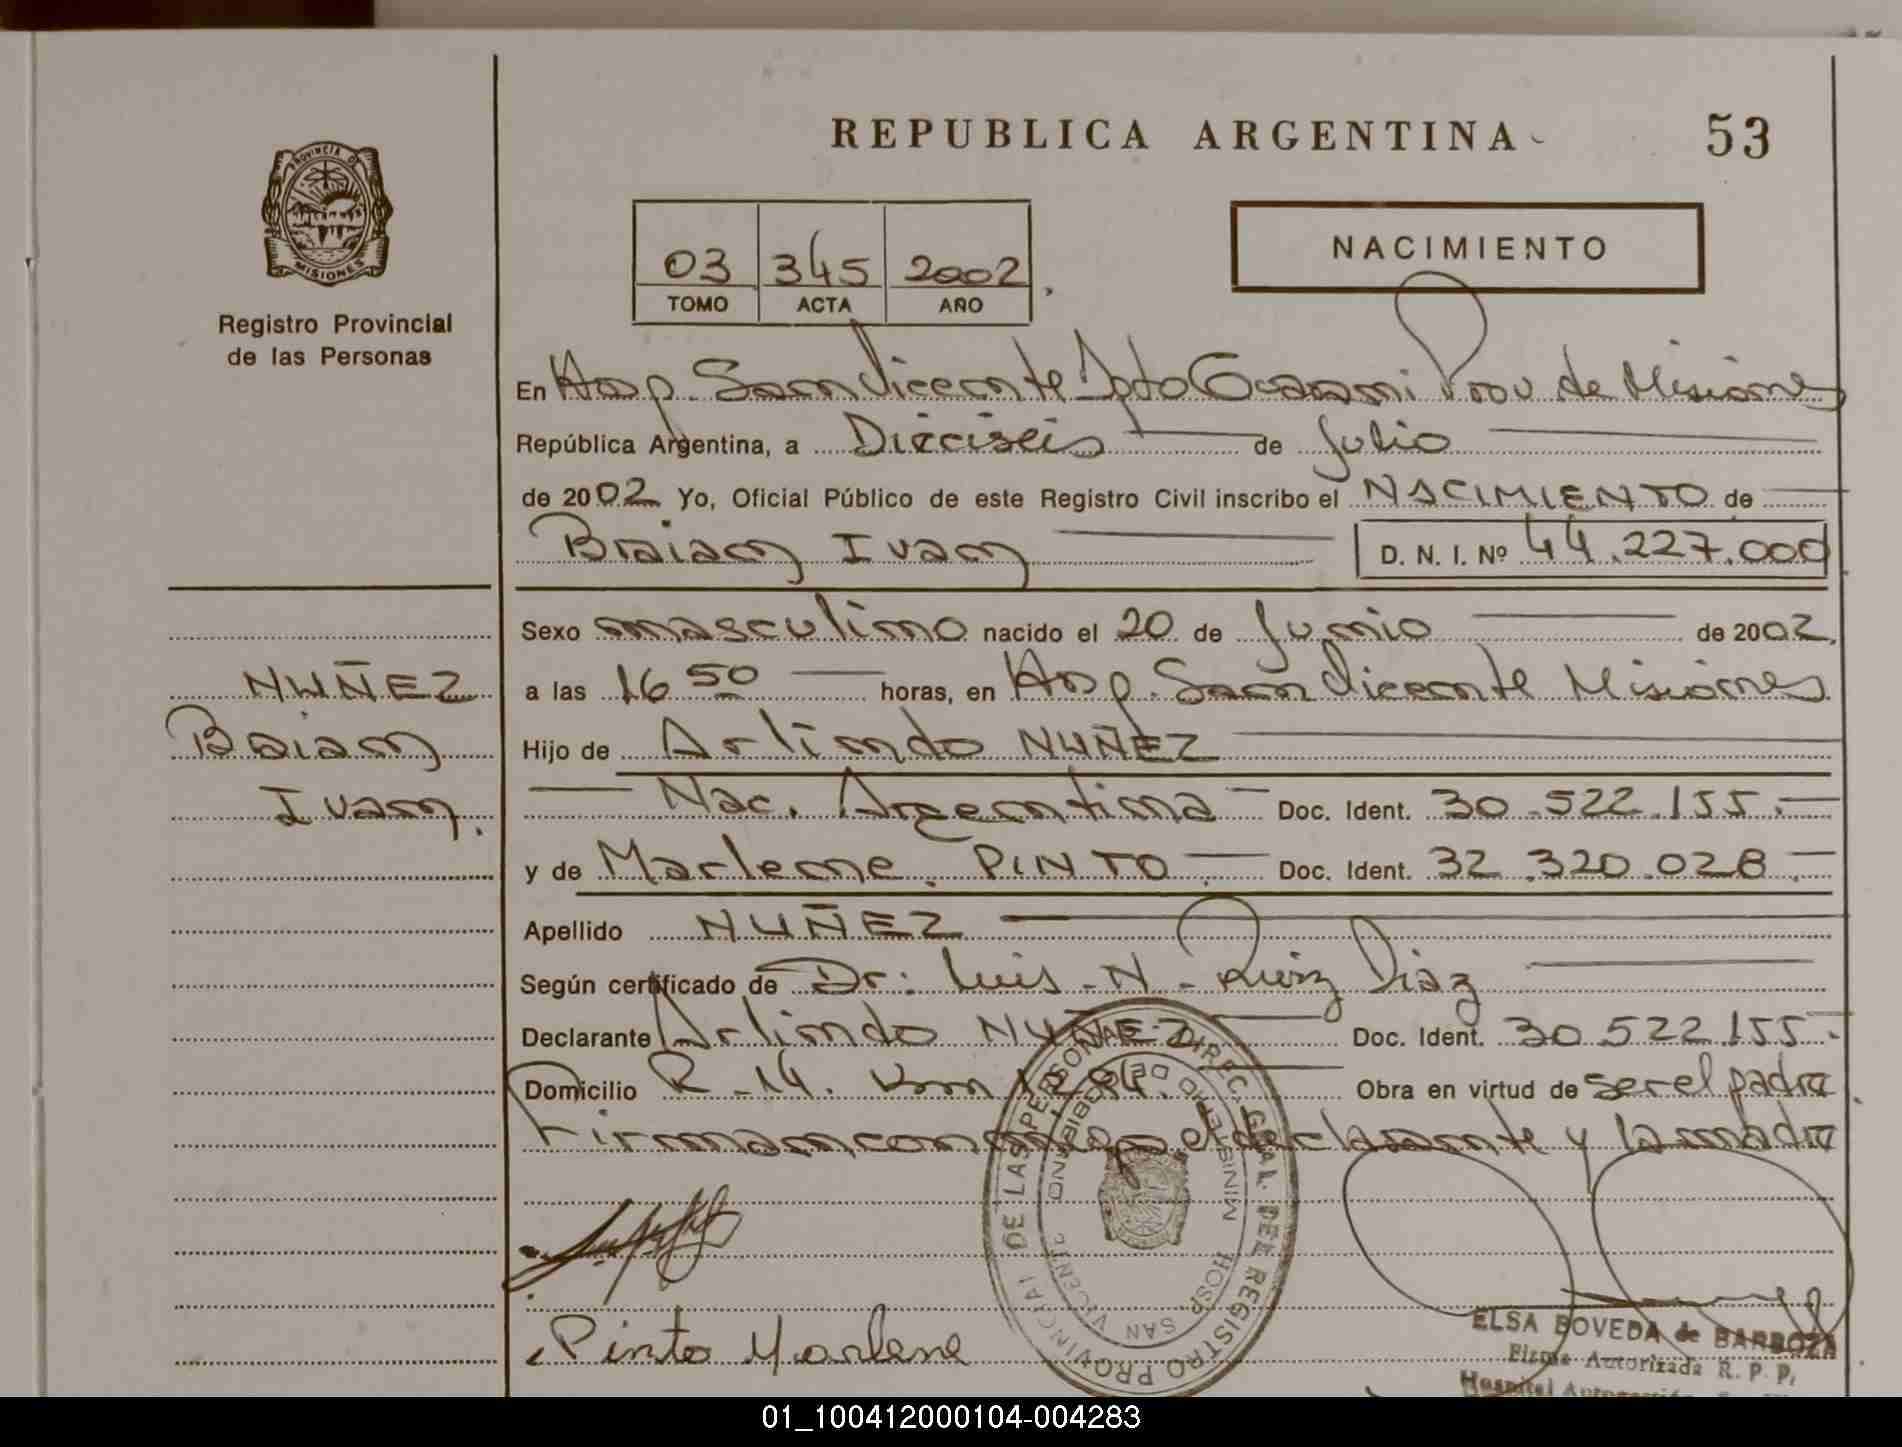 REPUBLICA ARGENTINA
53
PROVINCIA DE
MISIONES
Registro Provincial
de las Personas
03 345 2002
TOMO ACTA AÑO
NACIMIENTO
En Hosp. San Vicente Dpto Guarani Prov de Misiones
República Argentina, a Dieciseis de Julio
de 2002 Yo, Oficial Público de este Registro Civil inscribo el NACIMIENTO de
Braian Ivan D. N. I. Nº 44.227.000
Sexo masculino nacido el 20 de Junio de 2002
a las 16 50 horas, en Hosp. San Vicente Misiones
Hijo de Arlindo NUÑEZ
Nac. Argentina Doc. Ident. 30.522.155
y de Marlene PINTO Doc. Ident. 32.320.028
Apellido NUÑEZ
Según certificado de Dr. Luis N. Ruiz Diaz
Declarante Arlindo NUÑEZ Doc. Ident. 30.522.155
Domicilio R.14. Km 1284. Obra en virtud de ser el padre
Firman conmigo el declarante y la madre
NUÑEZ
Braian
Ivan.
Pinto Marlene
DIREC. GRAL. DEL REGISTRO PROVINCIAL DE LAS PERSONAS
MINISTERIO DE GOBIERNO
HOSP. SAN VICENTE
ELSA BOVEDA de BARBOZA
Firma Autorizada R. P. P.
Hospital
01_100412000104-004283